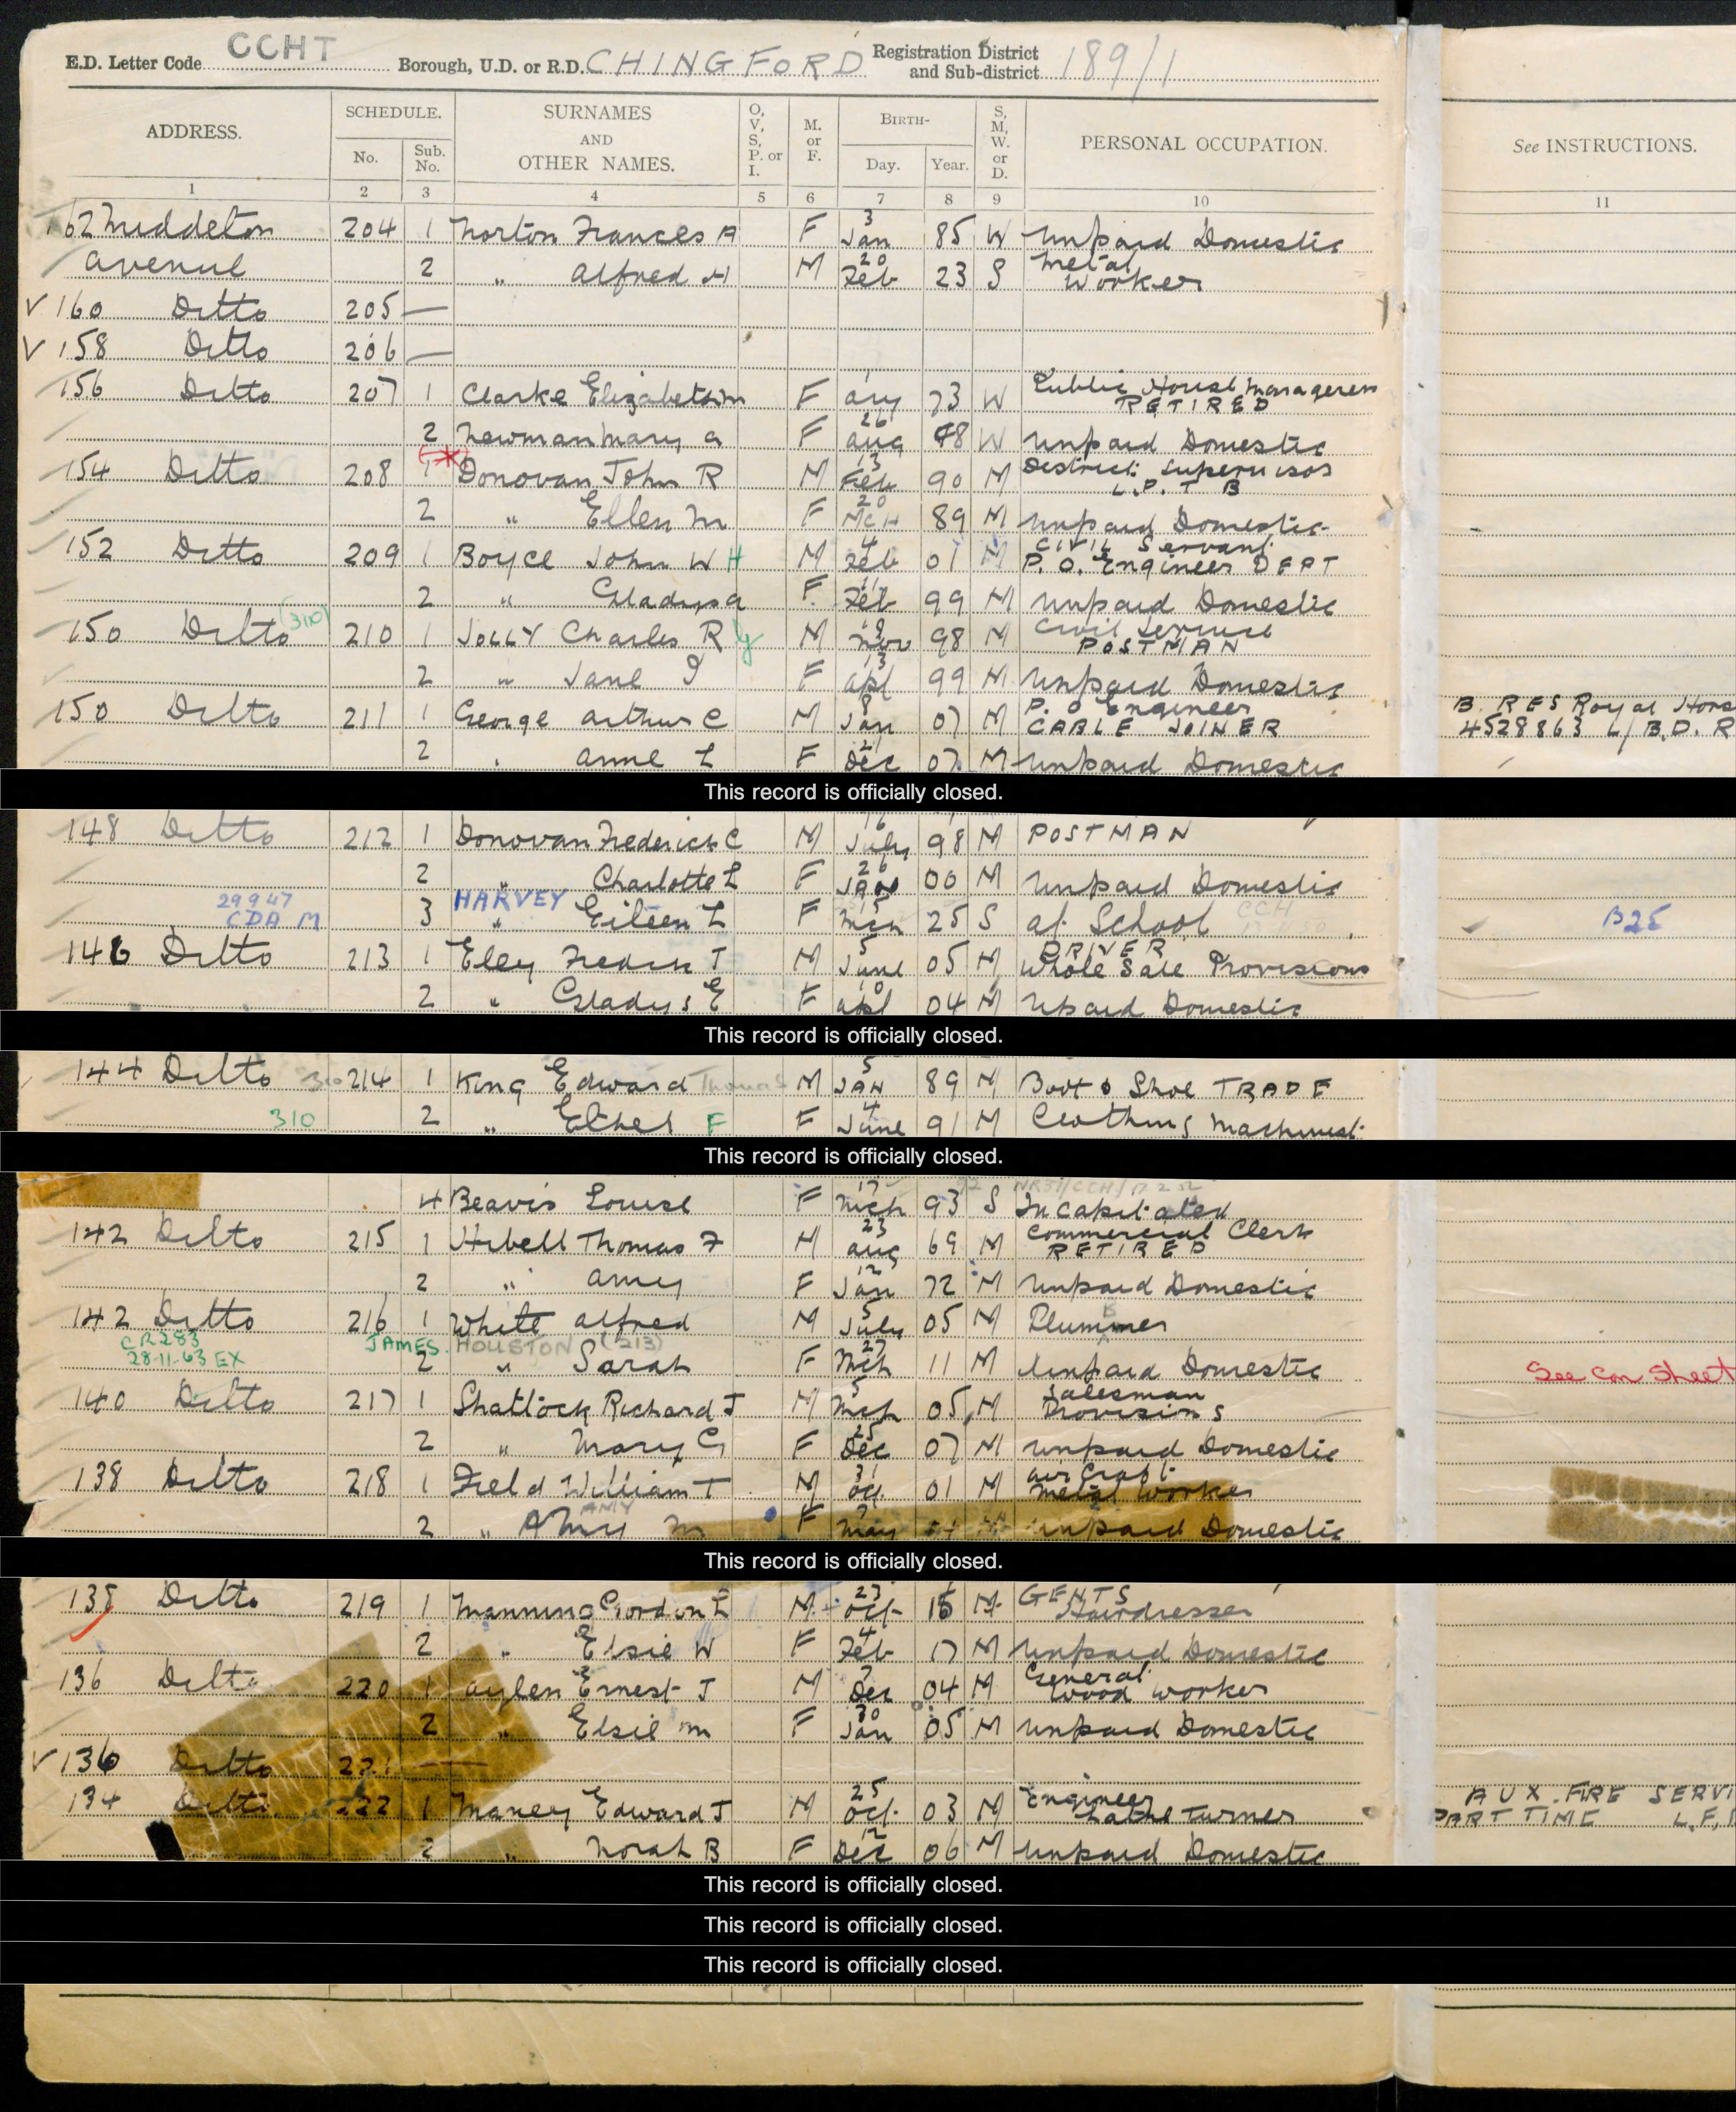 E.D. Letter Code CCHT Borough, U.D. or R.D. CHINGFORD Registration District and Sub-district 189/1
ADDRESS. SCHEDULE. No. Sub. No. SURNAMES AND OTHER NAMES. O, V, S, P. or I. M. or F. BIRTH- Day. Year. S, M, W. or D. PERSONAL OCCUPATION. See INSTRUCTIONS.
1 2 3 4 5 6 7 8 9 10 11
162 Middleton 204 1 Norton Frances A F 3 Jan 85 W Unpaid Domestic
Avenue 2 " Alfred H M 20 Feb 23 S Metal Worker
✓ 160 Ditto 205 —
✓ 158 Ditto 206 —
156 Ditto 207 1 Clarke Elizabeth M F 73 W Public House Manageress RETIRED
2 Newman Mary A F 26 Aug W Unpaid Domestic
154 Ditto 208 1 Donovan John R M 13 Feb 90 M District Supervisor L.P.T B
2 " Ellen M F 20 MCH 89 M Unpaid Domestic
152 Ditto 209 1 Boyce John W H M 4 Feb 01 M Civil Servant P.O. Engineer DEPT
2 " Gladys A F 11 Feb 99 M Unpaid Domestic
(310)
150 Ditto 210 1 JOLLY Charles R M Nov 98 M Civil Service POSTMAN
2 " Jane I F 13 Apl 99 M Unpaid Domestic
150 Ditto 211 1 George Arthur C M 8 Jan 07 M P.O Engineer CABLE JOINER B. RES Royal Hors
4528863 L/B.D.R
2 " Anne L F 21 Dec 07 M Unpaid Domestic
This record is officially closed.
148 Ditto 212 1 Donovan Frederick C M 16 July 98 M POSTMAN
2 " Charlotte L F 26 JAN 00 M Unpaid Domestic
29947 CDA M 3 HARVEY " Eileen L F 15 Mch 25 S at School CCH B25
146 Ditto 213 1 Eley Frederic T M 5 June 05 M DRIVER Whole Sale Provisions
2 " Gladys E F 10 Apl 04 M Upaid Domestic
This record is officially closed.
144 Ditto 214 1 King Edward Thomas M 5 JAN 89 M Boot & Shoe TRADE
310 2 " Ethel F F 4 June 91 M Clothing Machinist
This record is officially closed.
4 Beavis Louise F 17 Mch 93 S Incapitated
142 Ditto 215 1 Hibell Thomas F M 23 Aug 69 M Commercial Clerk RETIRED
2 " Amy F 12 Jan 72 M Unpaid Domestic
142 Ditto 216 1 White Alfred M 5 July 05 M Plummer
CR283 28-11-63 EX JAMES. HOUSTON (213)
2 " Sarah F 27 Mch 11 M Unpaid Domestic See Con Sheet
140 Ditto 217 1 Shattock Richard J M 5 Mch 05 M Salesman Provisions
2 " Mary G F 25 Dec 07 M Unpaid Domestic
138 Ditto 218 1 Field William T M 31 Oct 01 M Air Craft Metal Worker
AMY
2 " Amy M F 7 May M Unpaid Domestic
This record is officially closed.
138 Ditto 219 1 Manning Gordon L M 23 Oct 15 M GENTS Hairdresser
2 " Elsie W F 4 Feb 17 M Unpaid Domestic
136 Ditto 220 1 Aylen Ernest J M 7 Dec 04 M General Wood Worker
2 " Elsie M F 30 Jan 05 M Unpaid Domestic
✓ 136 Ditto 221 —
134 Ditto 222 1 Maney Edward J M 25 Oct 03 M Engineer Lathe Turner AUX. FIRE SERVI
PART TIME L.F.
2 " Norah B F 12 Dec 06 M Unpaid Domestic
This record is officially closed.
This record is officially closed.
This record is officially closed.